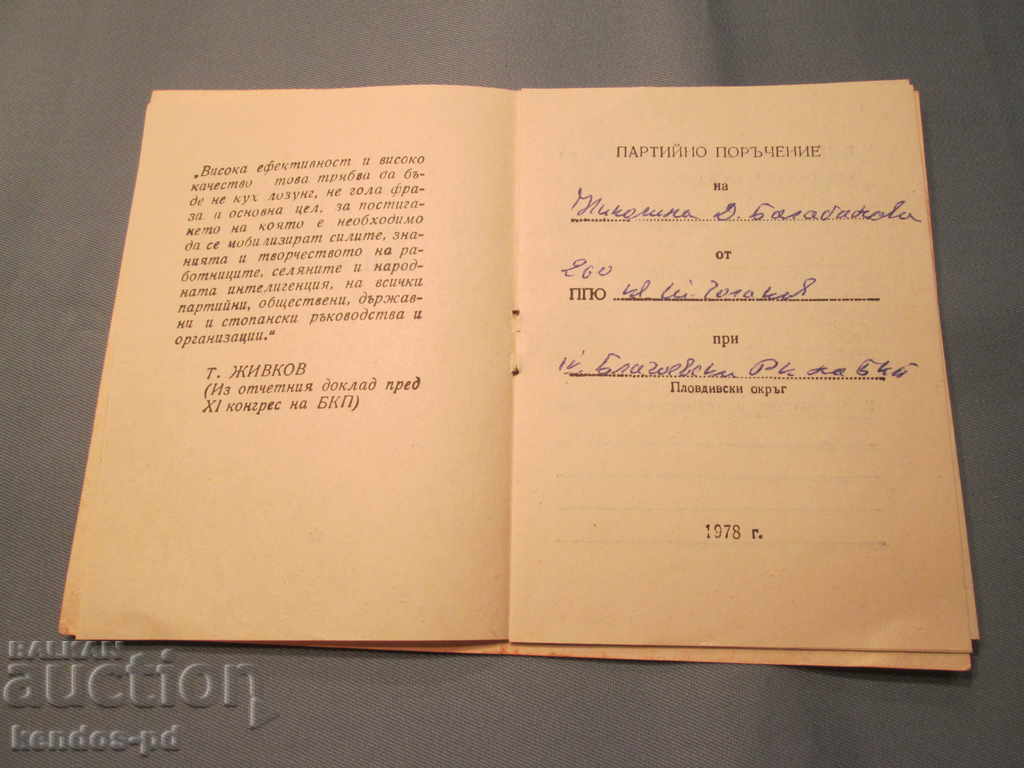 „Висока ефективност и високо
качество това трябва да бъ-
де не кух лозунг, не гола фра-
за а основна цел, за постига-
нето на която е необходимо
да се мобилизират силите, зна-
нията и творчеството на ра-
ботниците, селяните и народ-
ната интелигенция, на всички
партийни, обществени, държав-
ни и стопански ръководства и
организации.“
Т. ЖИВКОВ
(Из отчетния доклад пред
XI конгрес на БКП)
ПАРТИЙНО ПОРЪЧЕНИЕ
на
Николина Д. Балабанова
от
ППЮ
при
Благоевски РК на БКП
Пловдивски окръг
1978 г.
BALKAN
auction
kendos-pd